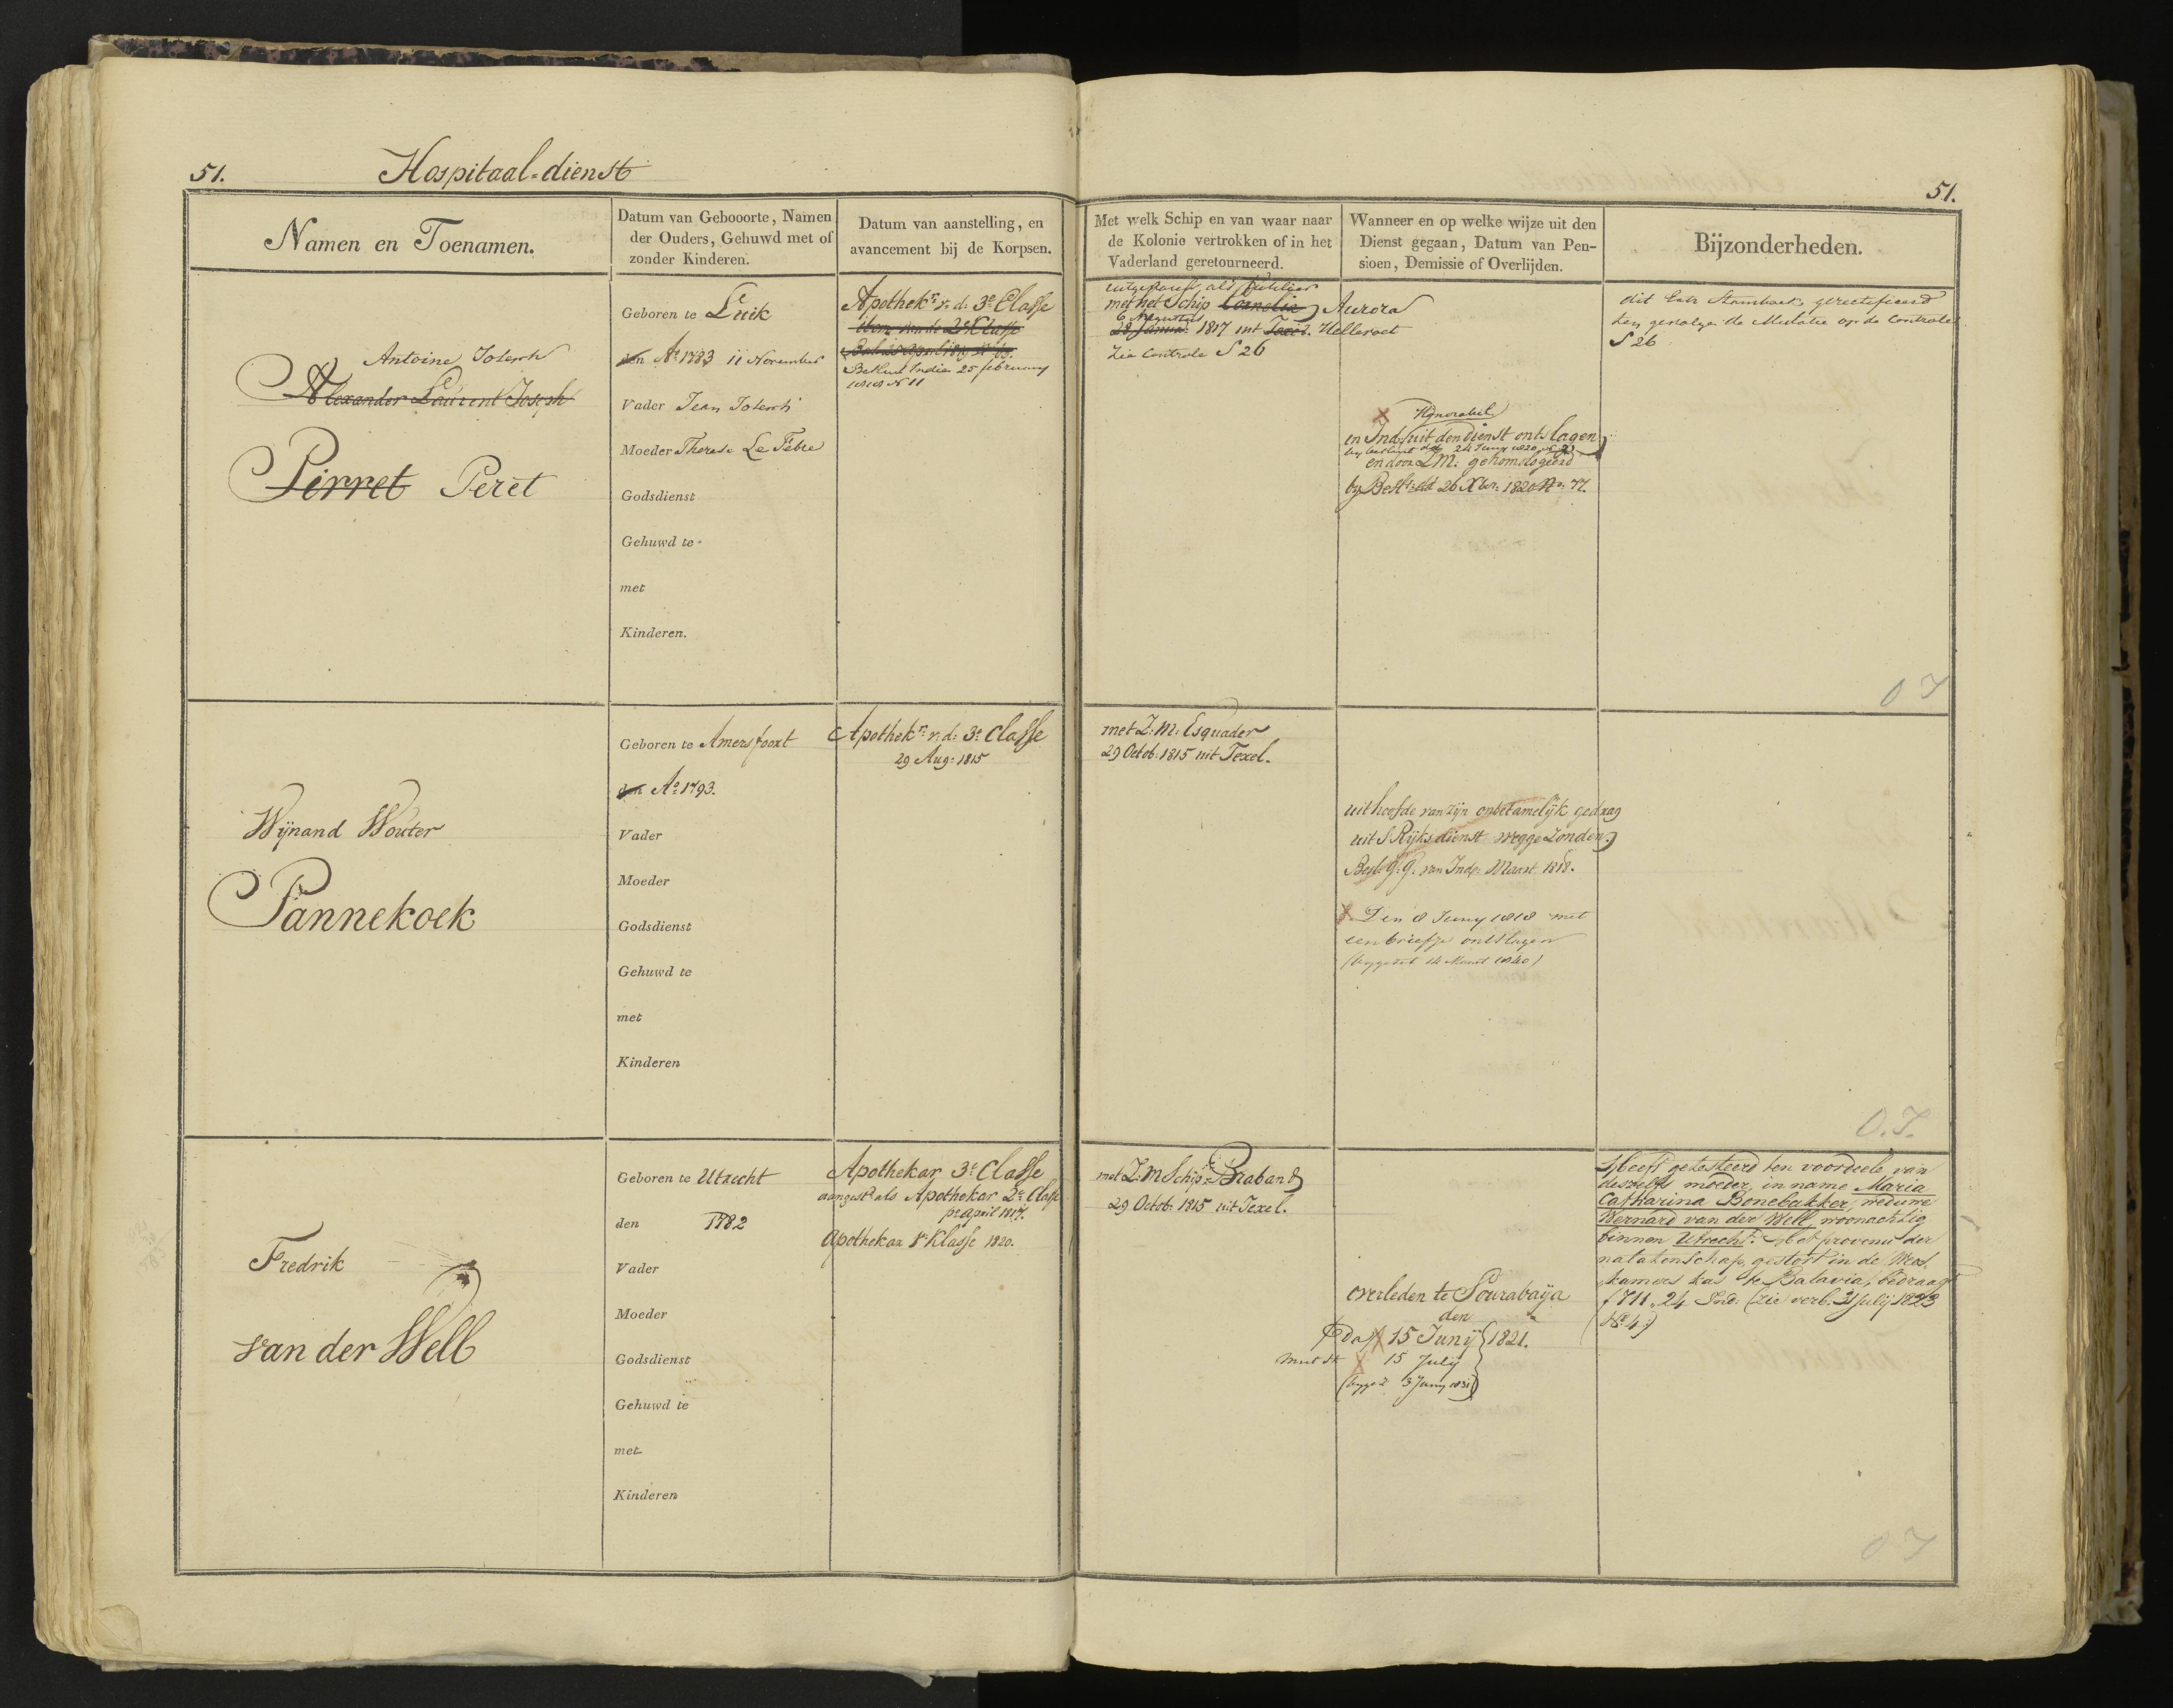 51.
Hospitaal-dienst
51.
Namen en Toenamen.
Datum van Gebooorte, Namen
der Ouders, Gehuwd met of
zonder Kinderen.
Datum van aanstelling, en
avancement bij de Korpsen.
Met welk Schip en van waar naar
de Kolonie vertrokken of in het
Vaderland geretourneerd.
Wanneer en op welke wijze uit den
Dienst gegaan, Datum van Pen-
sioen, Demissie of Overlijden.
Bijzonderheden.
Antoine Joseph
Alexander Laurent Joseph
Pirret Peret
Geboren te Luik
den Aº 1783 11 November
Vader Jean Joseph
Moeder Therese Le Febre
Godsdienst
Gehuwd te
met
Kinderen.
Apothekr v. d. 3e Classe
Item van de 2e Klasse
Besluit Indien 25 february
1819 N 11
als fuselier
met het Schip Cornelia Aurora
6 Augustus
28 Januar: 1817 uit Texel. Helleroet
Zie Controle S 26
Honorabel
en Ind: uit den dienst ontslagen
by besluit dd 24 Juny 1820
en door Z.M. gehomologeerd
by Beslt: dd 26 Xbr. 1820 Nr. 77.
dit Extr Stamboek gerectificeerd
ten gevolge de Mutatie op de Controle
S 26
O I
Wijnand Wouter
Pannekoek
Geboren te Amersfoort
den Aº 1793.
Vader
Moeder
Godsdienst
Gehuwd te
met
Kinderen
Apothekr v. d. 3e Classe
29 Aug: 1815
met Z: M: Esquader
29 Octob: 1815 uit Texel.
uit hoofde van zijn onbetamelijk gedrag
uit S Rijks dienst weggezonden.
Besl. G. G. van Ind. Maart 1818.
X Den 8 Juny 1818 met
een briefje ontslagen
(bygezet 14 Maart 1840)
O. I.
Fredrik
van der Well
Geboren te Utrecht
den 1782
Vader
Moeder
Godsdienst
Gehuwd te
met
Kinderen
Apothekar 3e Classe
aangest: als Apothekar 2e Classe
po april 1817.
Apothekar 1e Klasse 1820.
met Z: M Schip Braband
29 Octob: 1815 uit Texel.
overleden te Sourabaija
den
15 Junij 1821.
X 15 July
(bygez 3 Juny 1831)
Heeft getesteerd ten voordeele van
deszelfs moeder, in name Maria
Catharina Bonebakker, weduwe
Wernard van der Well, woonachtig
binnen Utrecht. Het provenu der
nalatenschap, gestort in de Wees
kamers kas te Batavia, bedraagt
f 711,24 Ind. (zie verb. 31 July 1823
No 4.)
O I